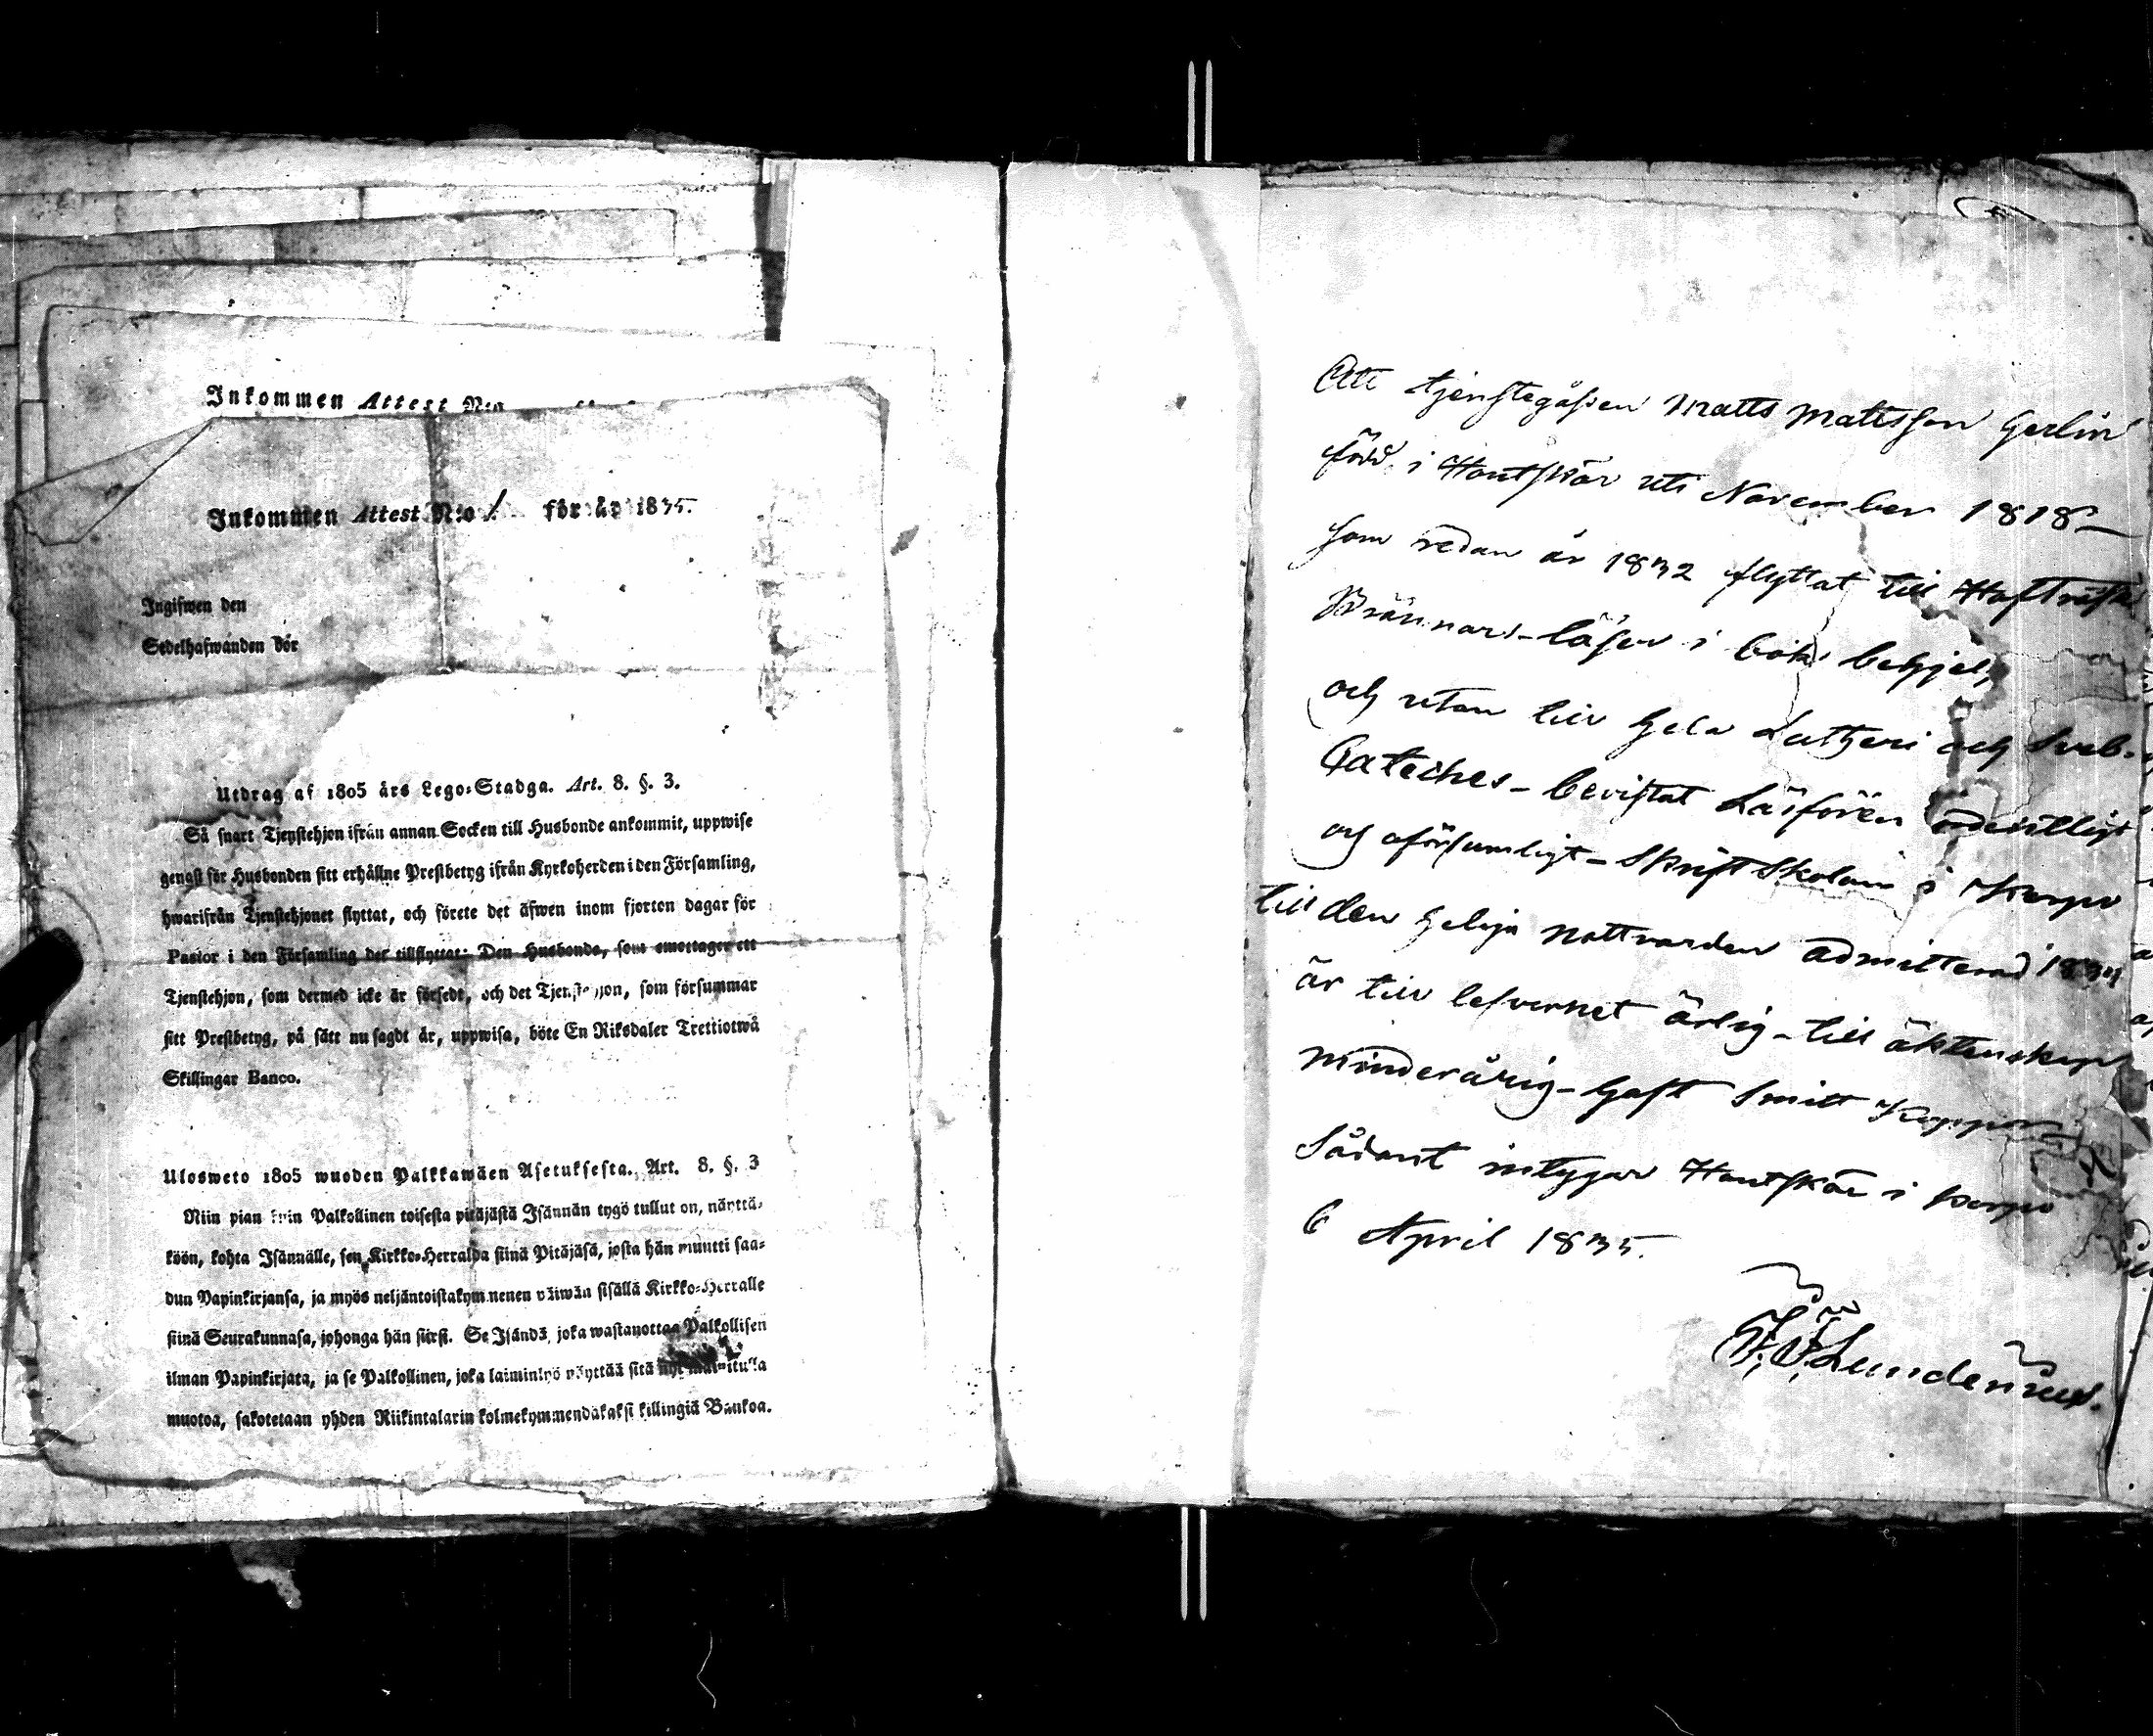 Inkommen Attest N:o
Inkommen Attest N:o 1. för år 1835.
Ingifwen den
Sedelhafwanden bör
Utdrag af 1805 års Lego-Stadga. Art. 8. §. 3.
Så snart Tjenstehjon ifrån annan Socken till Husbonde ankommit, uppwise
genast för Husbonden sitt erhållne Prestbetyg ifrån Kyrkoherden i den Församling,
hwarifrån Tjenstehjonet flyttat, och förete det äfwen inom fjorton dagar för
Pastor i den Församling det tillflyttat: Den Husbonde, som emottager ett
Tjenstehjon, som dermed icke är försedt, och det Tjenstehjon, som försummar
sitt Prestbetyg, på sätt nu sagdt är, uppwisa, böte En Riksdaler Trettiotwå
Skillingar Banco.
Ulosweto 1805 wuoden Palkkawäen Asetuksesta. Art. 8. §. 3
Niin pian kuin Palkollinen toisesta pitäjästä Isännän tygö tullut on, näyttä-
köön, kohta Isännälle, sen Kirkko-Herralda siinä Pitäjäsä, josta hän muutti saa-
dun Papinkirjansa, ja myös neljäntoistakymmenen päiwän sisällä Kirkko-Herralle
siinä Seurakunnasa, johonga hän siirsi. Se Isändä, joka wastanottaa Palkollisen
ilman Papinkirjata, ja se Palkollinen, joka laiminlyö näyttää sitä nyt mainitulla
muotoa, sakotetaan yhden Riikintalarin kolmekymmendäkaksi killingiä Bankoa.
Att tjenstegåssen Matts Mattsson Gerlin
född i Houtskär uti November 1818 –
som redan år 1832 flyttat till
Brännars – läser i bok behjel,
och utan till hela Lutheri och Sveb.
Cateches – bevistat Läsförhör ordentligt
och oförsumligt – Skriftskolan i Korpo
till den helija nattvarden admitterad 1834
är till lefvernet ärlig – till äktenskap
minderårig – haft Smitt Koppor
Sådant intygar Houtskär i Korpo
6 April 1835.